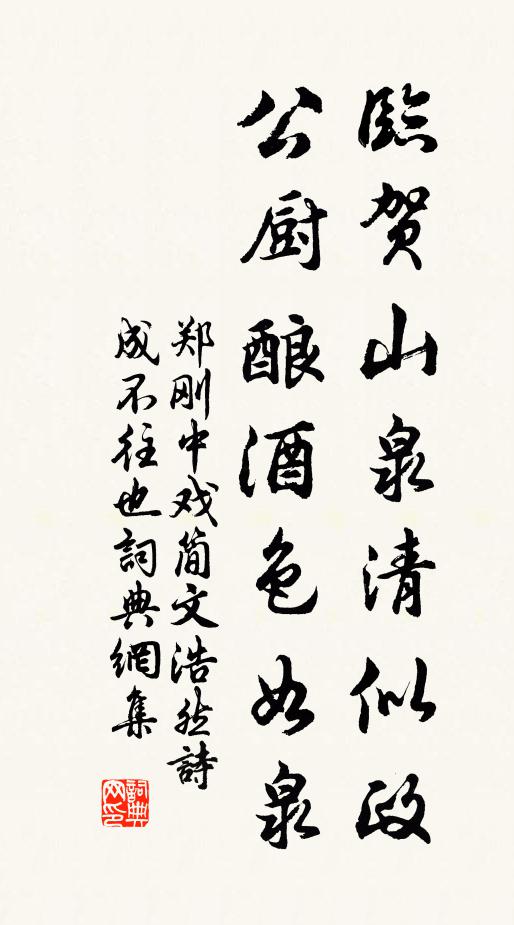 臨贺山泉清似政
公厨酿酒色如泉
郑刚中戏简文浩然詩
成不往也詞典網集
詞典网印